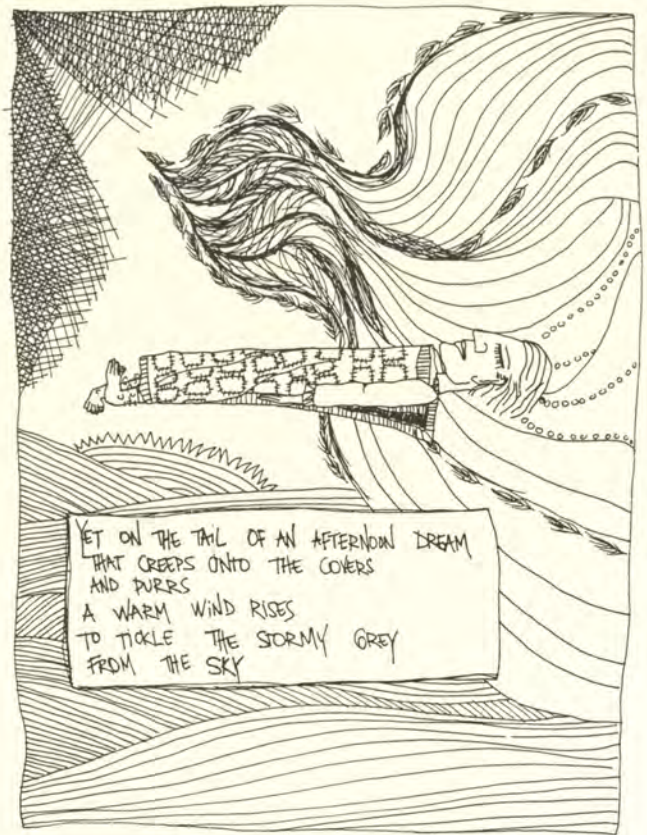 YET ON THE TAIL OF AN AFTERNOON DREAM
THAT CREEPS ONTO THE COVERS
AND PURRS
A WARM WIND RISES
TO TICKLE THE STORMY GREY
FROM THE SKY